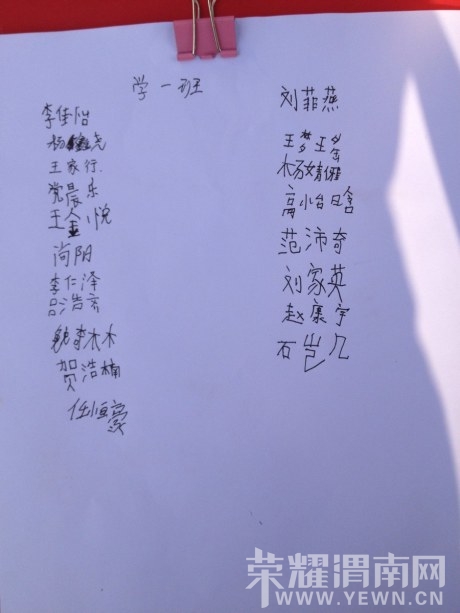 学一班
李佳怡
杨尧
王家行
党晨乐
王金悦
尚阳
李仁泽
吕浩京
魏李木木
贺浩楠
任恒豪
刘菲燕
王梦瑶
杨婧
高怡晗
范沛奇
刘家英
赵康宇
石岂几
荣耀渭南网
WWW.YEWN.CN